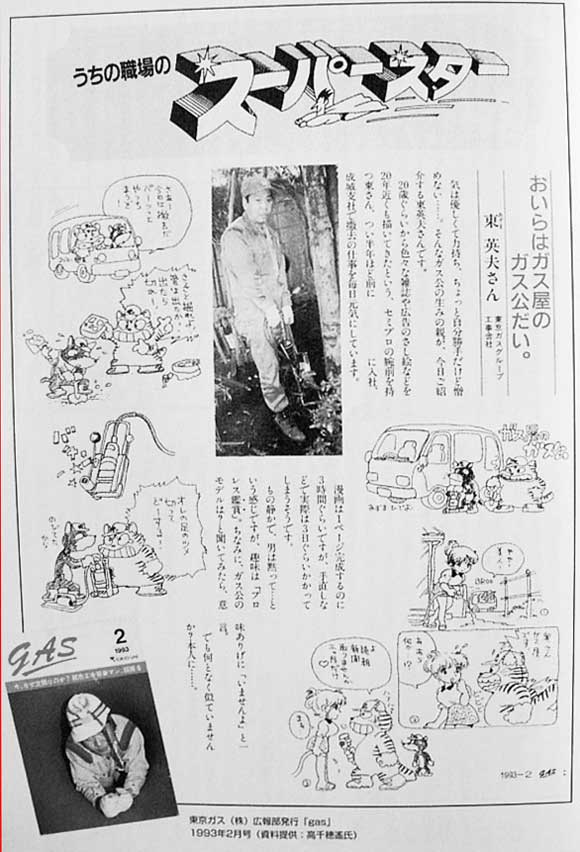 うちの職場の
スーパースター
おいらはガス屋の
ガス公だい。
東京ガスグループ
工事会社
東 英夫さん
気は優しくて力持ち、ちょっと自分勝手だけど憎
めない……。そんなガス公の生みの親が、今日ご紹
介する東英夫さんです。
20歳ぐらいから色々な雑誌や広告のさし絵などを
20年近くも描いてきたという、セミプロの腕前を持
つ東さん。つい半年ほど前に
に入社、
成城支社で撤去の仕事を毎日元気にしています。
漫画は1ページ完成するのに
3時間ぐらいですが、手直しな
どで実際は3日ぐらいかかって
しまうそうです。
もの静かで、男は黙って…と
いう感じですが、趣味は「プロ
レス鑑賞」。ちなみに、ガス公の
モデルは?と聞いてみたら、意
味あり げに「いませんよ」と一
言。
でも何となく似ていません
か?本人に……。
さあー
今日は
やって
出たら
オレの足のツメ
どーする!
ガス屋の
ガス公
1993−2 gas
GAS
2
1993
東京ガス(株)広報部発行「gas」
1993年2月号(資料提供:高千穂遙氏)